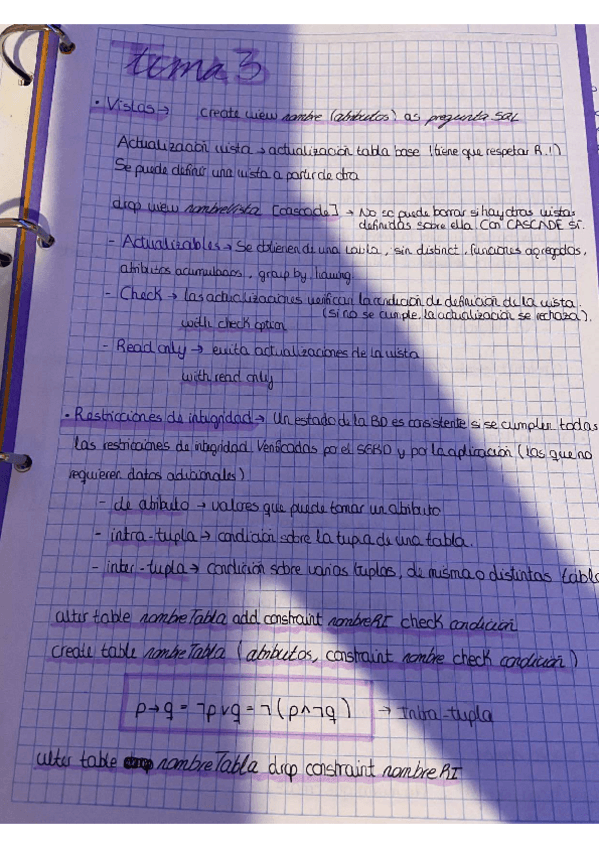 tema 3
• Vistas → create view nombre (atributos) as pregunta SQL
Actualización vista → actualización tabla base (tiene que respetar R.I)
Se puede definir una vista a partir de otra
drop view nombreVista [cascade] → No se puede borrar si hay otras vistas
definidas sobre ella. Con CASCADE SÍ.
- Actualizables → Se obtienen de una tabla, sin distinct, funciones agregadas,
atributos acumulados, group by, having.
- Check → las actualizaciones verifican la condición de definición de la vista.
(si no se cumple, la actualización se rechaza).
with check option
- Read only → evita actualizaciones de la vista
with read only
• Restricciones de integridad → Un estado de la BD es consistente si se cumplen todas
las restricciones de integridad. Verificadas por el SGBD y por la aplicación (las que no
requieren datos adicionales)
- de atributo → valores que puede tomar un atributo
- intra-tupla → condición sobre la tupla de una tabla.
- inter-tupla → condición sobre varias tuplas, de misma o distintas tabla
alter table nombreTabla add constraint nombreRI check condición
create table nombreTabla (atributos, constraint nombre check condición)
p→q = ¬p∨q = ¬(p∧¬q) → Intra-tupla
alter table nombreTabla drop constraint nombreRI